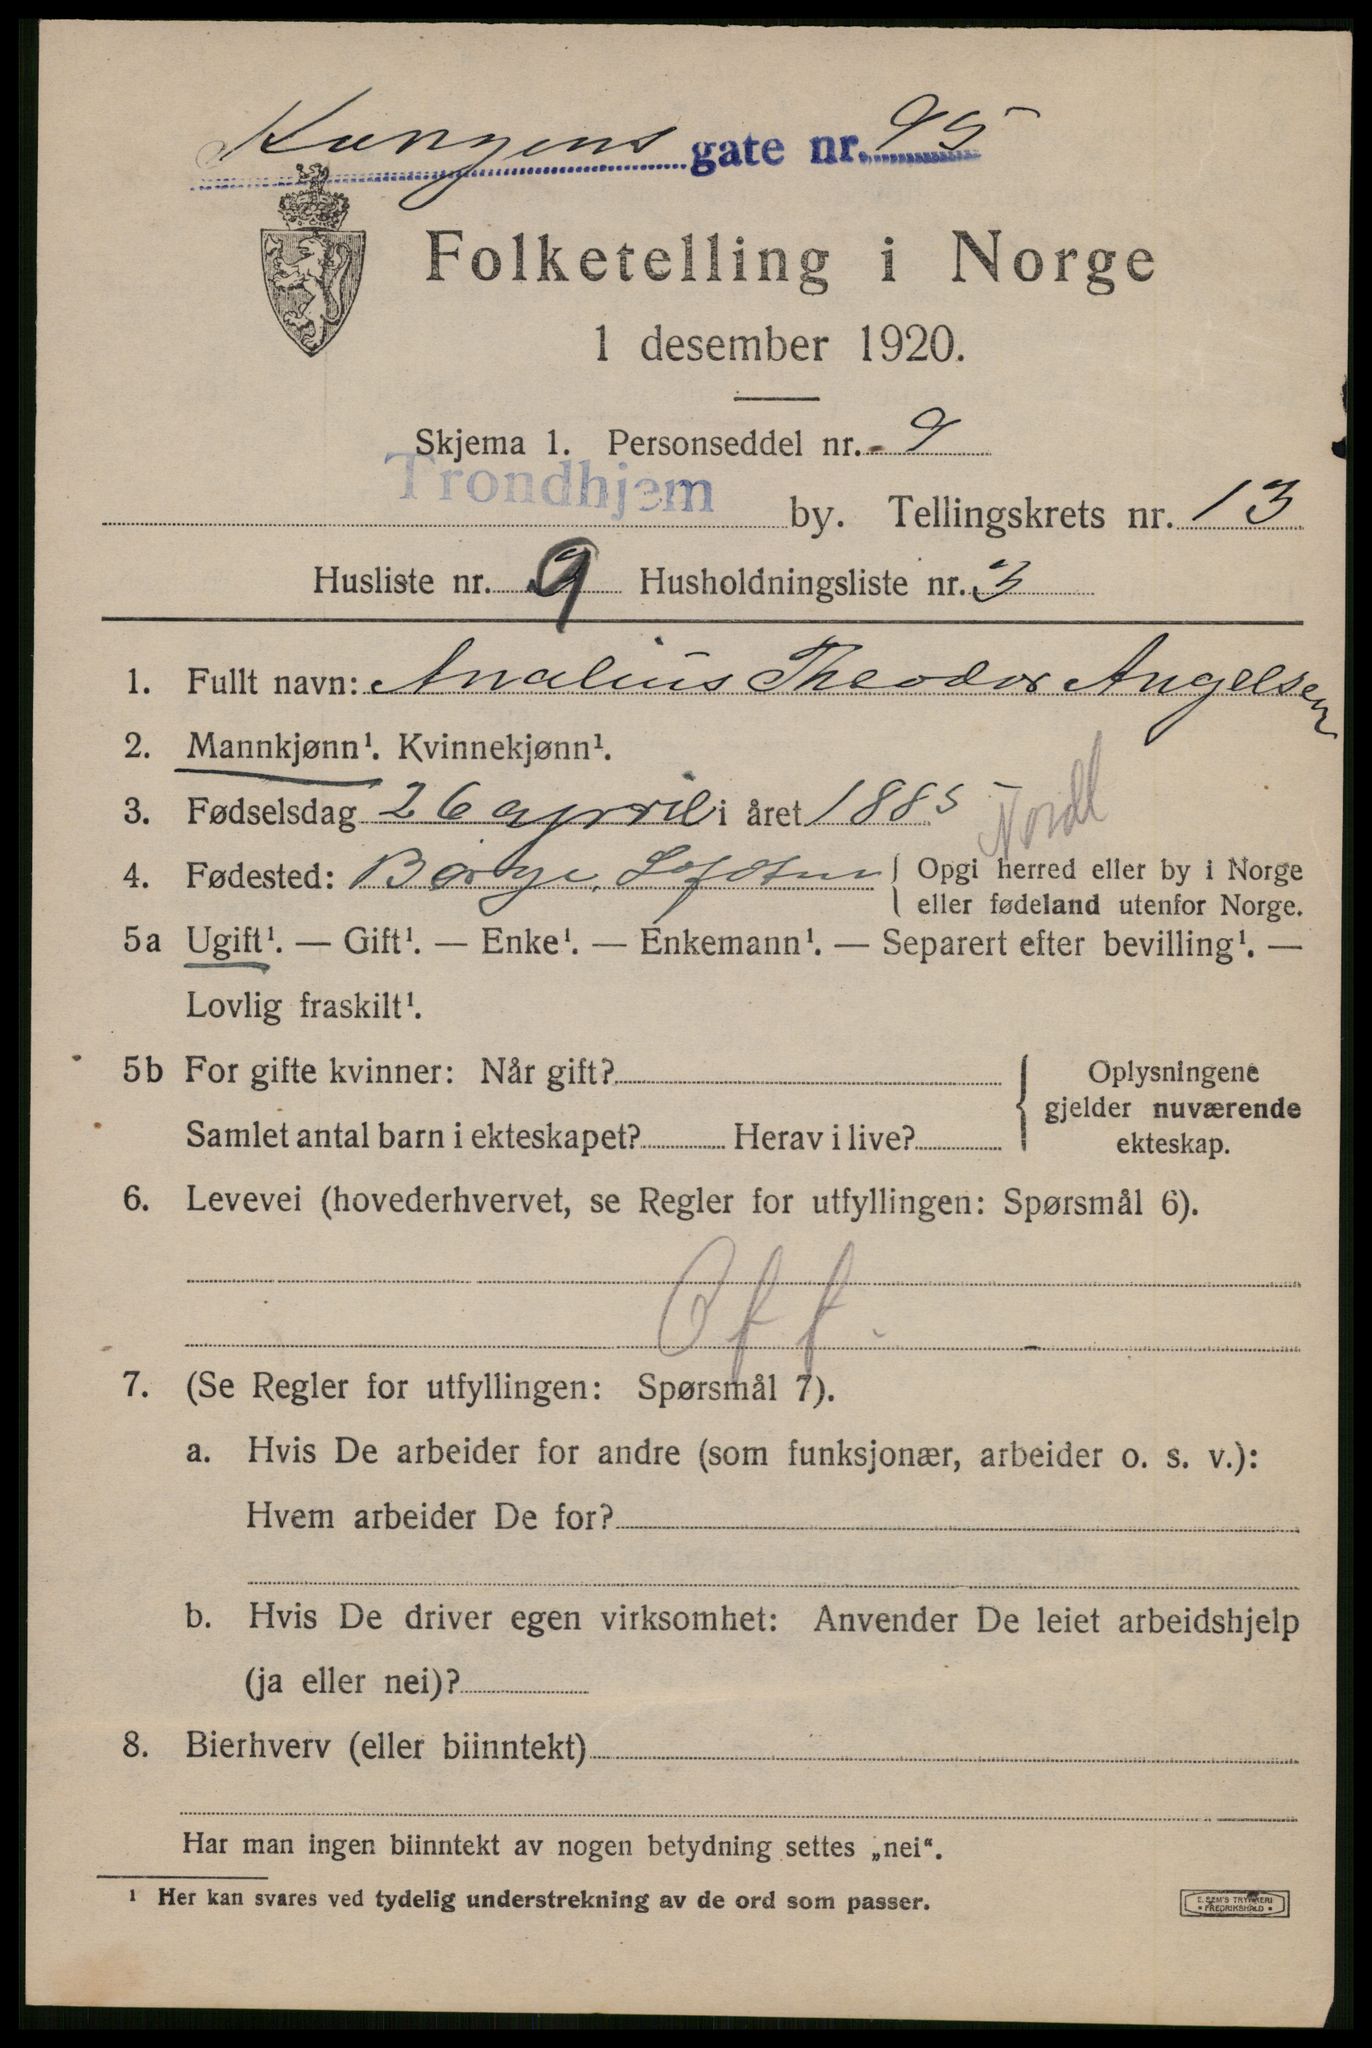 Kongens gate nr. 95
Folketelling i Norge
1 desember 1920.
Skjema 1. Personseddel nr. 9
Trondhjem by. Tellingskrets nr. 13
Husliste nr. 9 Husholdningsliste nr. 3
1. Fullt navn: Analius Theodor Angelsen
2. Mannkjønn¹. Kvinnekjønn¹.
Nordl
3. Fødselsdag 26 april i året 1885
4. Fødested: Borge, Lofoten { Opgi herred eller by i Norge
eller fødeland utenfor Norge.
5a Ugift¹. — Gift¹. — Enke¹. — Enkemann¹. — Separert efter bevilling¹. —
Lovlig fraskilt¹.
5b For gifte kvinner: Når gift? { Oplysningene
gjelder nuværende
Samlet antal barn i ekteskapet? Herav i live? ekteskap.
6. Levevei (hovederhvervet, se Regler for utfyllingen: Spørsmål 6).
Off.
7. (Se Regler for utfyllingen: Spørsmål 7).
a. Hvis De arbeider for andre (som funksjonær, arbeider o. s. v.):
Hvem arbeider De for?
b. Hvis De driver egen virksomhet: Anvender De leiet arbeidshjelp
(ja eller nei)?
8. Bierhverv (eller biinntekt)
Har man ingen biinntekt av nogen betydning settes „nei“.
¹ Her kan svares ved tydelig understrekning av de ord som passer.
E. SEM'S TRYKKERI
FREDRIKSHALD